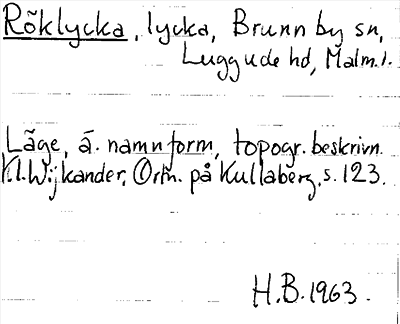 Röklycka, lycka, Brunnby sn,
Luggude hd, Malm. l.
Läge, ä. namnform, topogr. beskrivn.
K.I. Wijkander, Ortn. på Kullaberg, s. 123.
H.B. 1963.